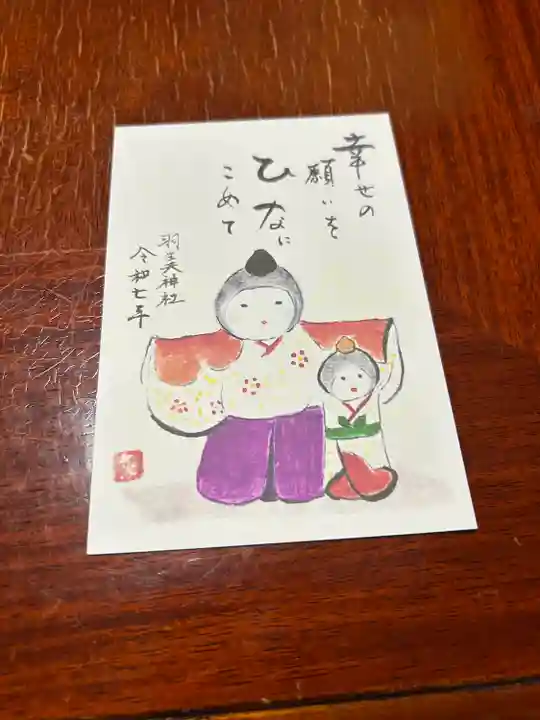 幸せの
願いを
ひなに
こめて
羽生天神社
令和七年